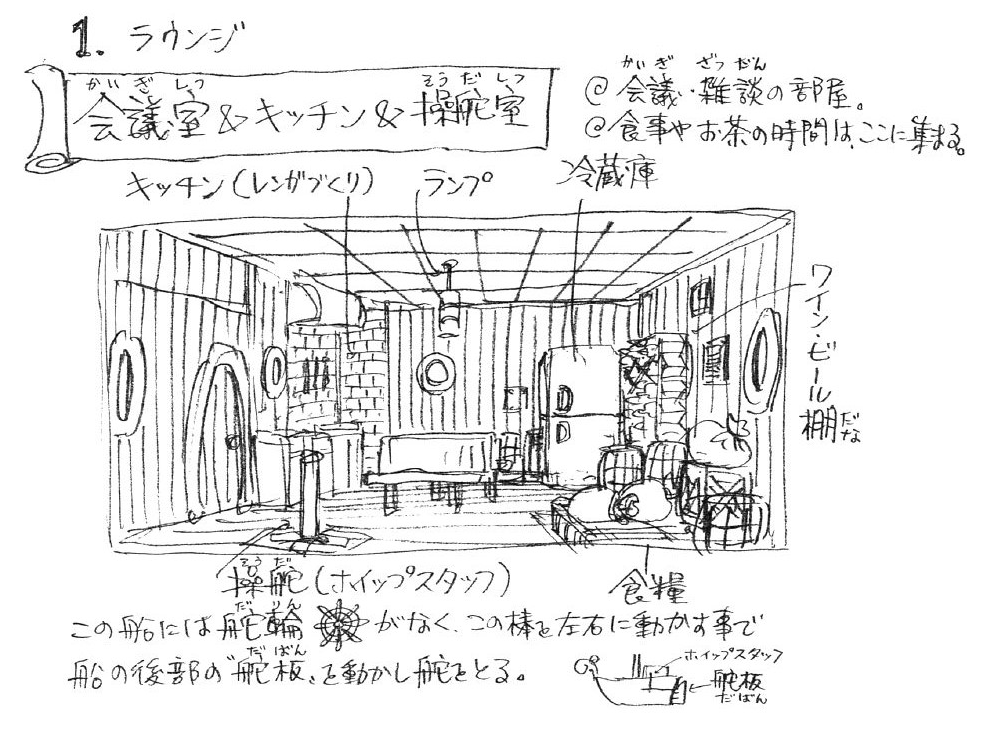 1. ラウンジ
かいぎしつ
そうだしつ
会議室&キッチン&操舵室
かいぎ ざつだん
@会議・雑談の部屋。
@食事やお茶の時間は、ここに集まる。
キッチン(レンガづくり)
ランプ
冷蔵庫
ワイン・ビール棚
だな
そうだ
操舵(ホイップスタッフ)
食糧
だりん
この船には舵輪がなく、この棒を左右に動かす事で
だばん
船の後部の"舵板"を動かし舵をとる。
ホイップスタッフ
舵板
だばん